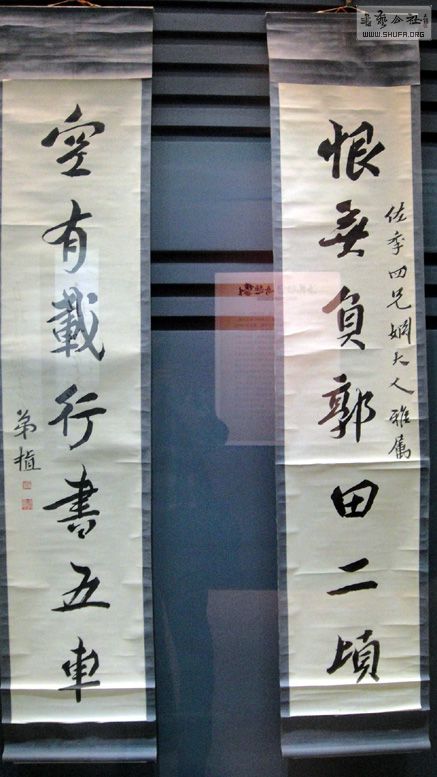 恨無負郭田二頃
佐季四兄姻大人雅属
空有載行書五車
弟植
WWW.SHUFA.ORG